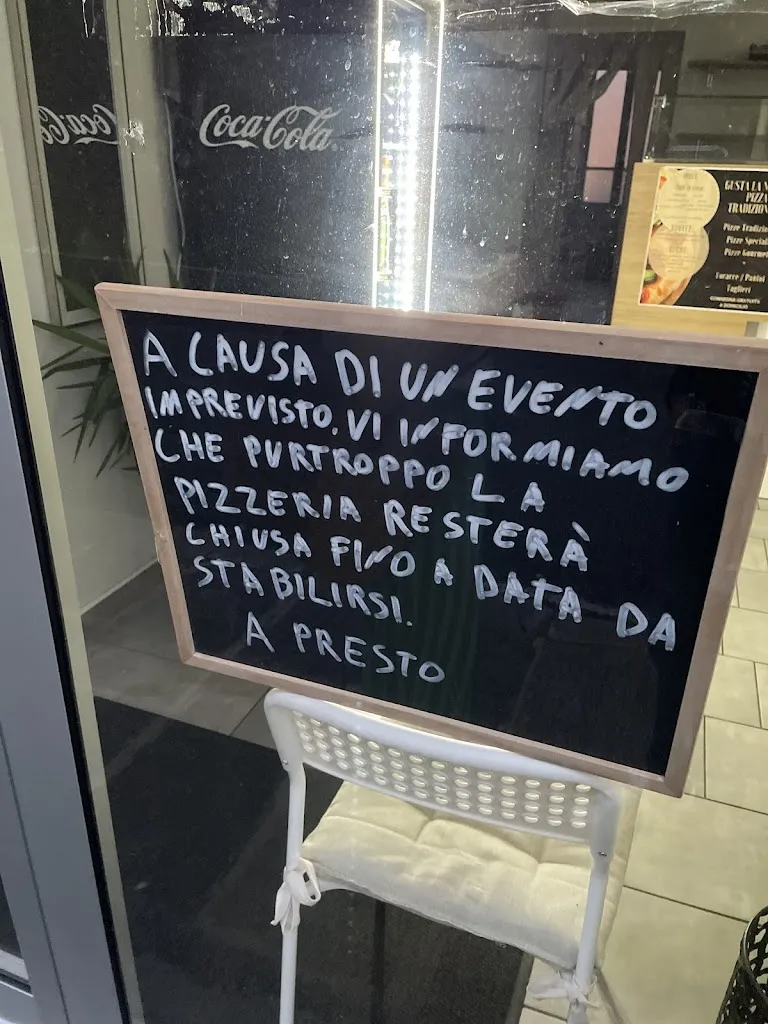 Coca-Cola
Coca-Cola
GUSTA LA
PIZZA
TRADIZION
Pizze Tradizio
Pizze Special
Pizze Gourme
Focacce / Panini
Taglieri
CONSEGNA GRATUITA
A DOMICILIO
A CAUSA DI UN EVENTO
IMPREVISTO, VI INFORMIAMO
CHE PURTROPPO LA
PIZZERIA RESTERÀ
CHIUSA FINO A DATA DA
STABILIRSI.
A PRESTO